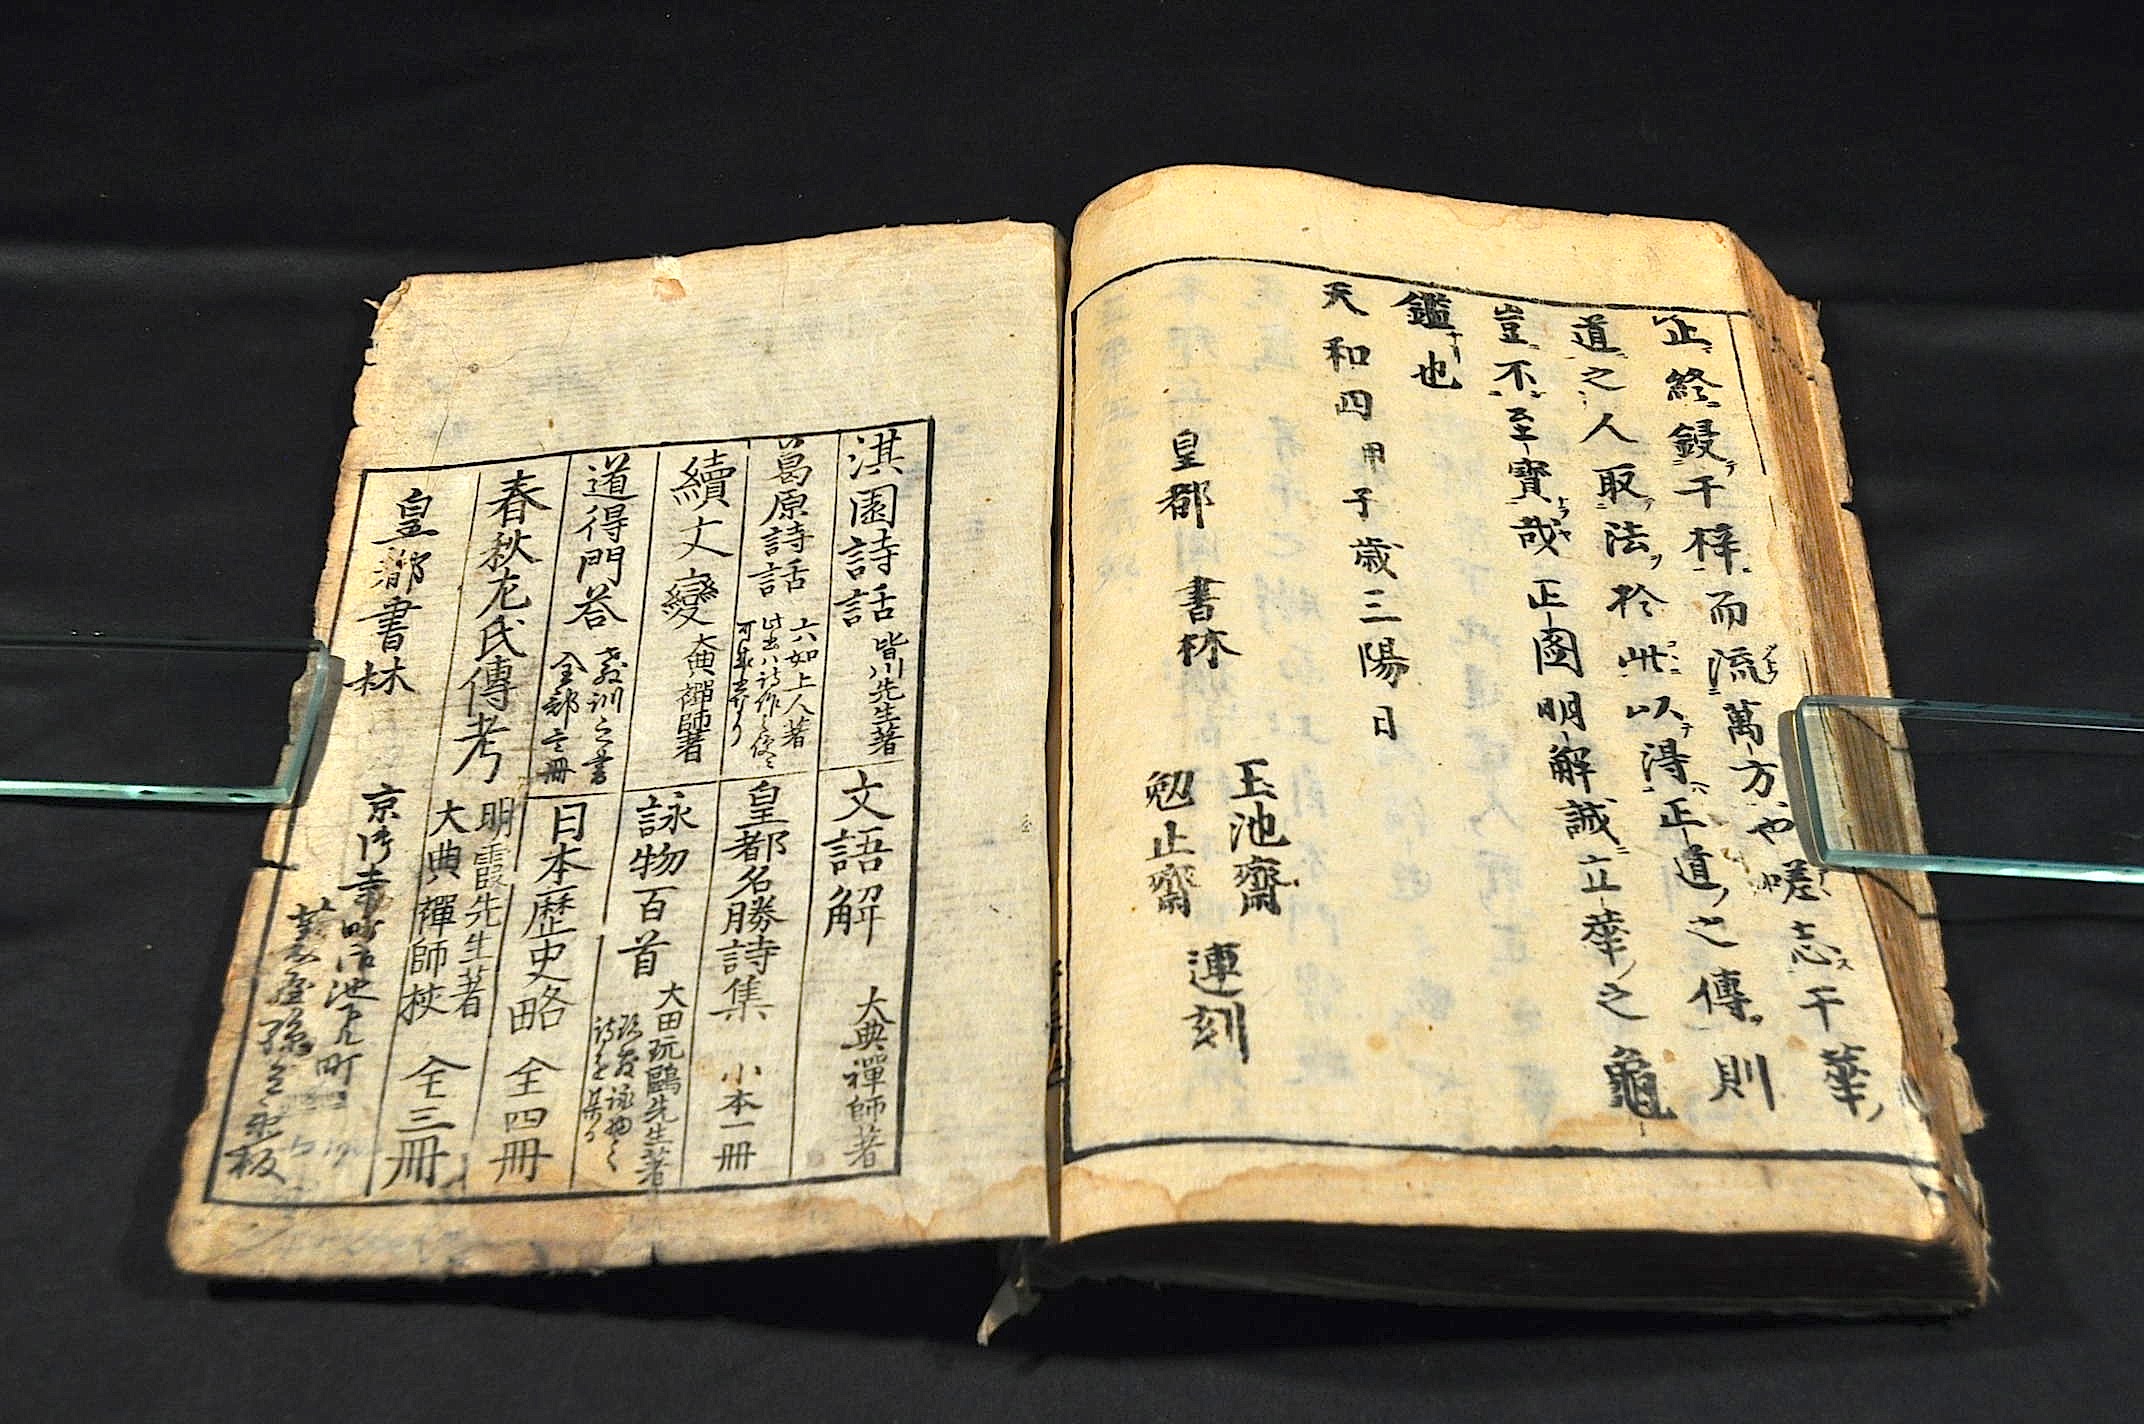 正終鋟干梓而流萬方也嗟志干華
道之人取法於此以得正道之傳則
豈不至寶哉正圖明解誠立華之龜
鑑也
天和四甲子歳三陽日
皇都書林
玉池齋
勉止齋
連刻
淇園詩話 皆川先生著
文語解 大典禪師著
葛原詩話 六如上人著
皇都名勝詩集 小本一冊
續文變 大典禪師著
詠物百首 大田玩鷗先生著
道得門答 教訓之書
全部三冊
日本歴史略 全四冊
春秋左氏傳考 明霞先生著
大典禪師校 全三冊
皇都書林
京
寺町
池之町
板